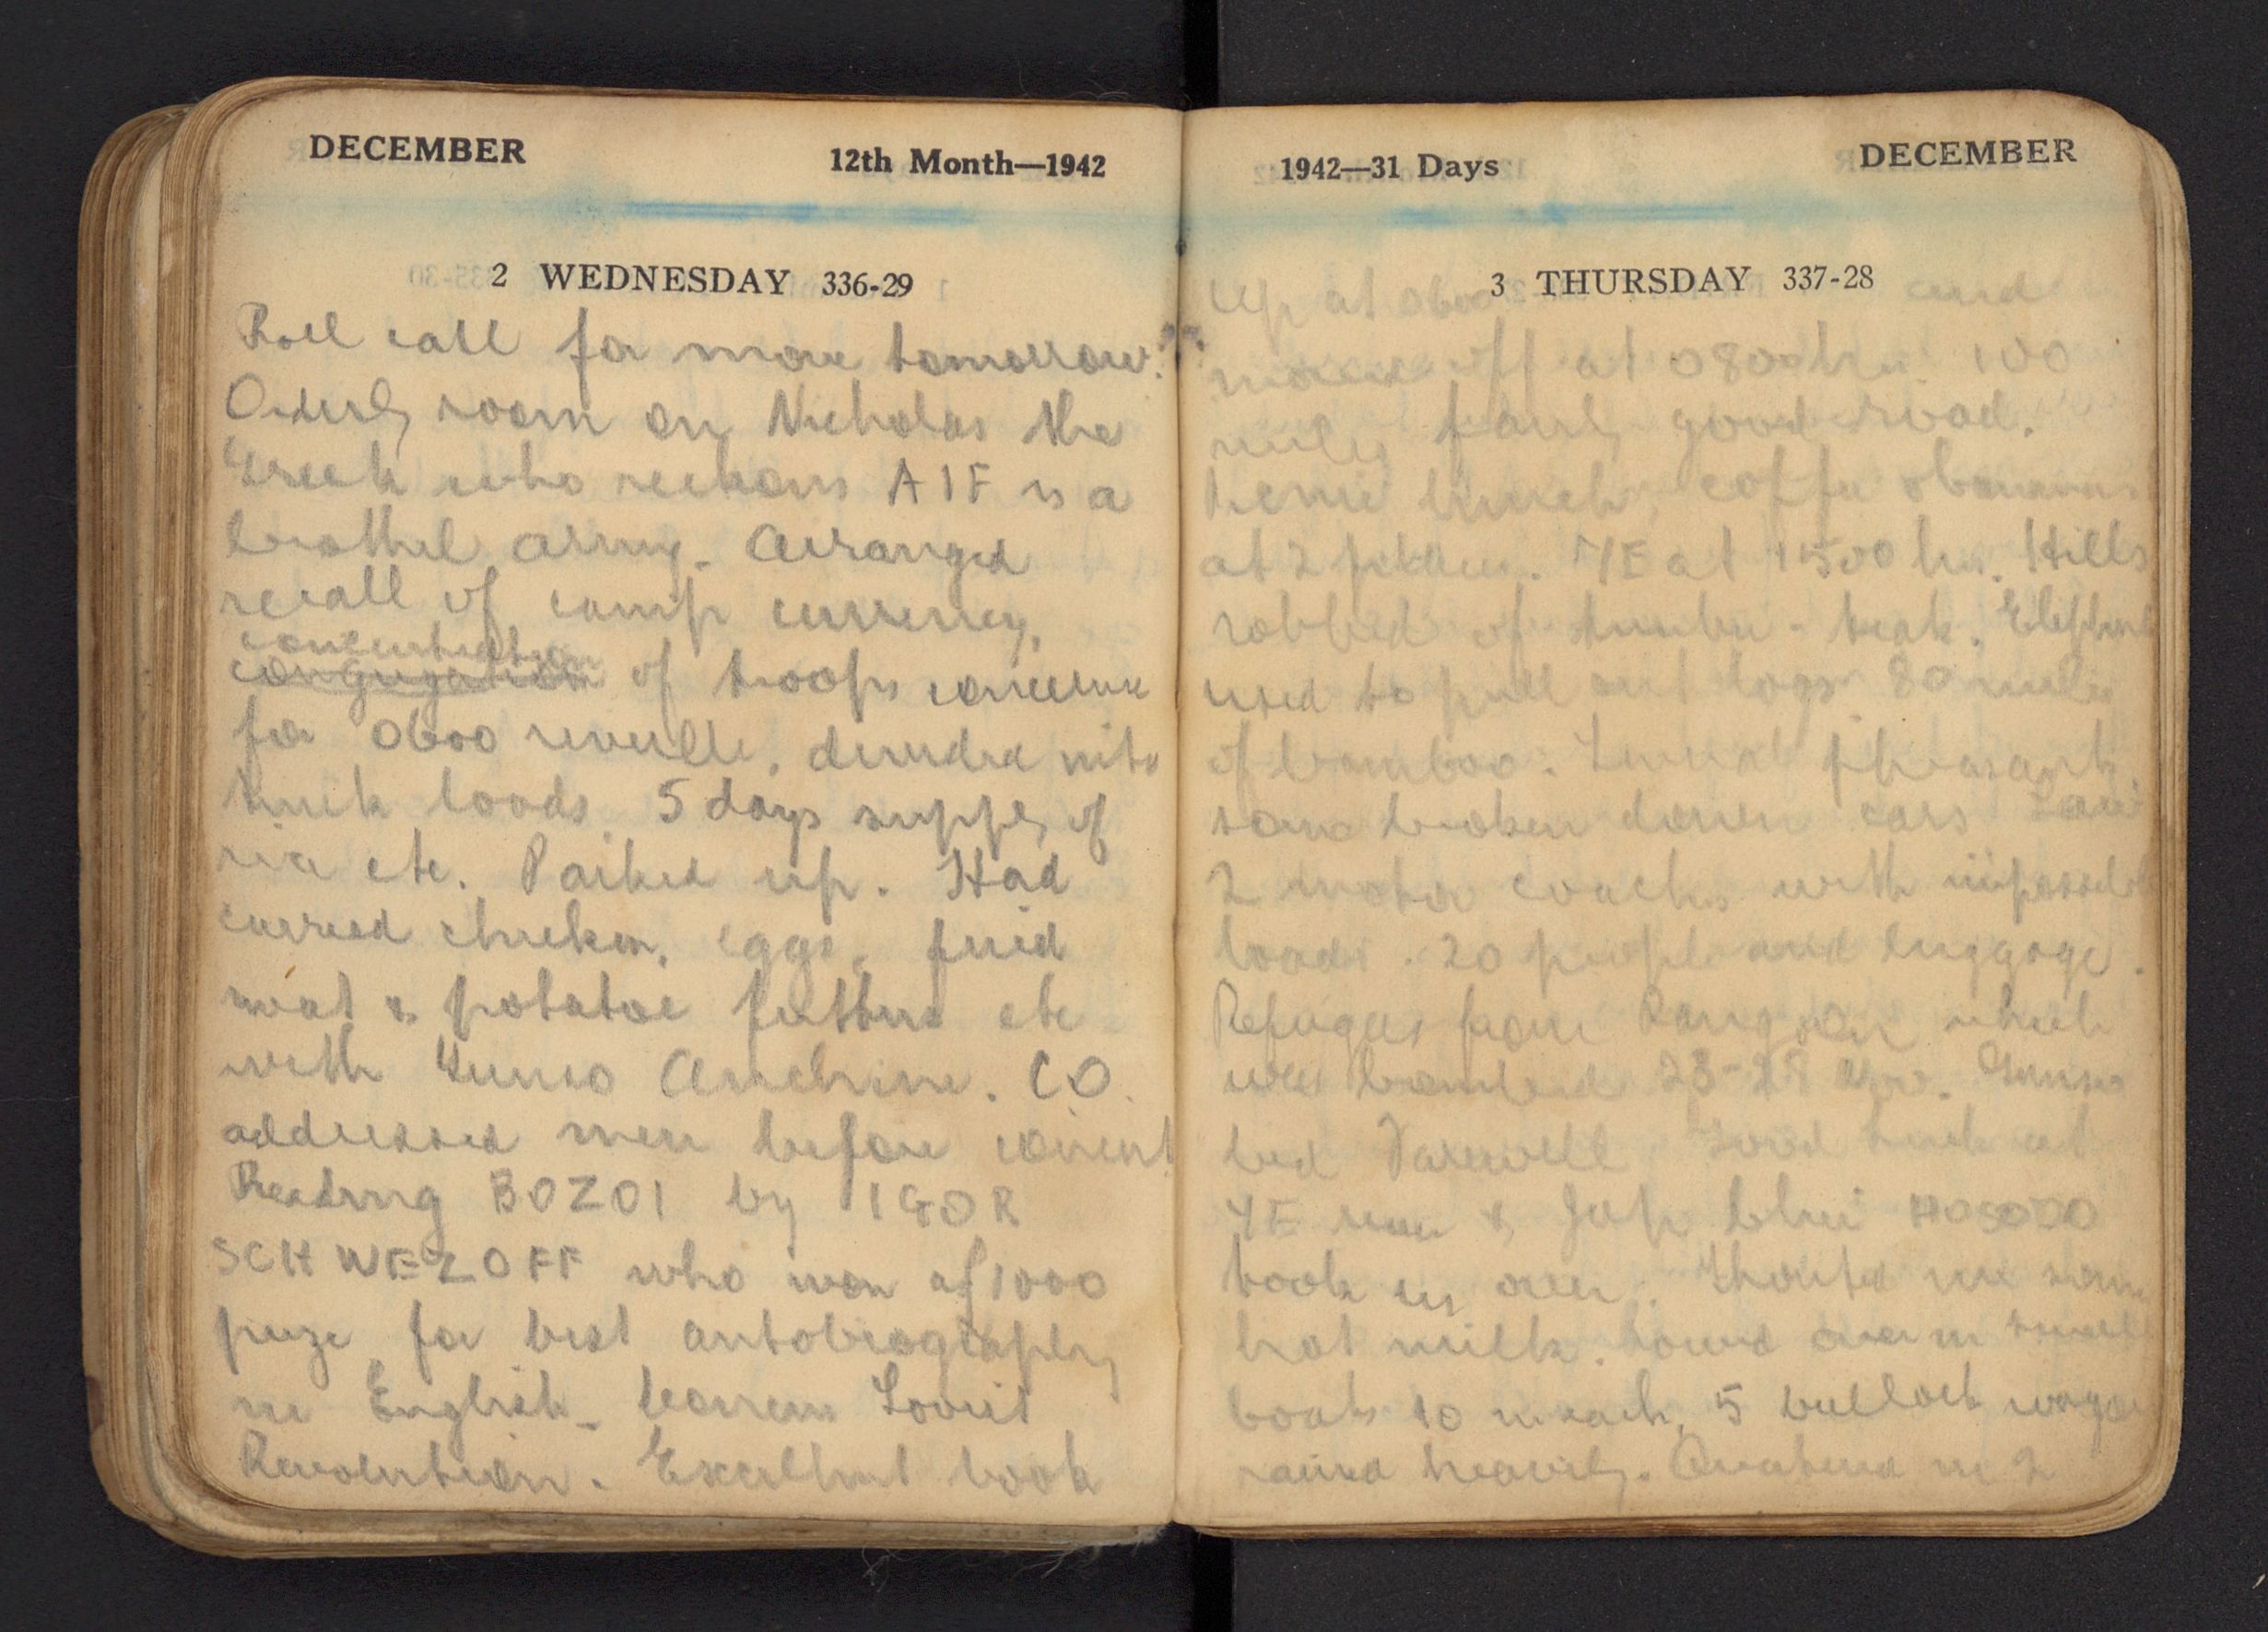 DECEMBER
12th Month—1942
2 WEDNESDAY 336-29
Roll call for move tomorrow.
Orderly room on Nicholas the
Greek who reckons AIF is a
brothel army. Arranged
recall of camp currency,
concentration
congregation of troops
for 0600 reveille, divided into
truck loads. 5 days supply of
rice etc. Packed up. Had
curried chicken, eggs, fried
meat & potatoe fritters etc
with Gunso Auchime. CO
addressed men before
Reading BOZOI by IGOR
SCHWEZOFF who won a £1000
prize for best autobiography
in English. Soviet
Revolution. Excellent book
1942—31 Days
DECEMBER
3 THURSDAY 337-28
Up at 0600 and
moved off at 0800 hrs. 100
miles fairly good road.
lunch, coffee & bananas
at 2 YE at 1500 hrs. Hills
robbed of timber - teak. Elephants
used to pull out logs. 80 miles
of bamboo. pheasants.
some broken down cars Saw
2 motor coaches with impossible
loads. 20 people and luggage.
Refugees from Rangoon which
was bombed 23-28 Nov. Gunso
bid Farewell. Good luck at
YE river & Jap Lieut HOSODO
took us over. Shouted me some
hot milk. Towed over in small
boats 10 in each, 5 bullock wagons
rained heavily. Quartered in 2